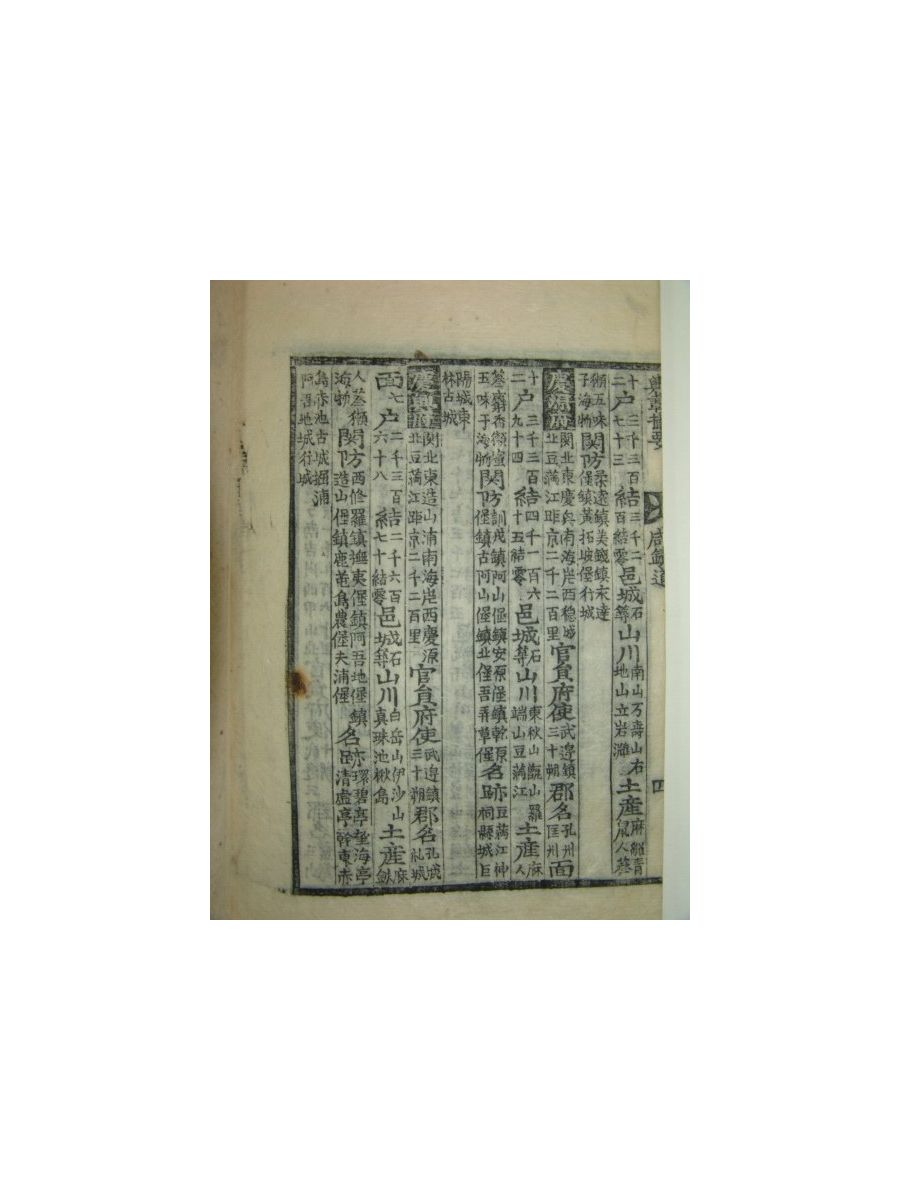 輿載撮要 咸鏡道 四
十二 戶 三千三百七十三 結 三千二百結零 邑城 石等 山川 南山万壽山右地山立岩灘 土産 麻貂青鼠人蔘
獺五味子海物 関防 柔遠鎮美錢鎮永達堡鎮黃拓坡堡行城
慶源府 関北東慶興南海岸西穩城北豆滿江距京二千二百里 官員 府使 武邊鎮三十朔 郡名 孔州匡州 面
十二 戶 三千三百九十四 結 四千一百六十五結零 邑城 石等 山川 東秋山甑山羅端山豆滿江 土産 麻人
蔘麝香獺蜜五味子海物 関防 訓戎鎮阿山堡鎮安原堡鎮乾原堡鎮古阿山堡鎮北堡吾弄草堡 名跡 豆滿江神祠縣城巨
陽城東林古城
慶興府 関北東造山浦南海岸西慶源北豆滿江距京二千二百里 官員 府使 武邊鎮三十朔 郡名 孔城
面 七 戶 二千三百六十八 結 二千六百七十結零 邑城 石等 山川 白岳山伊沙山真珠池楸島 土産 麻鉄
人蔘獺海物 関防 西修羅鎮撫夷堡鎮阿吾地堡鎮造山堡鎮鹿芚島農堡夫浦堡 名跡 環碧亭望海亭清虛亭幹東赤
島赤池古城堀浦阿吾地城行城